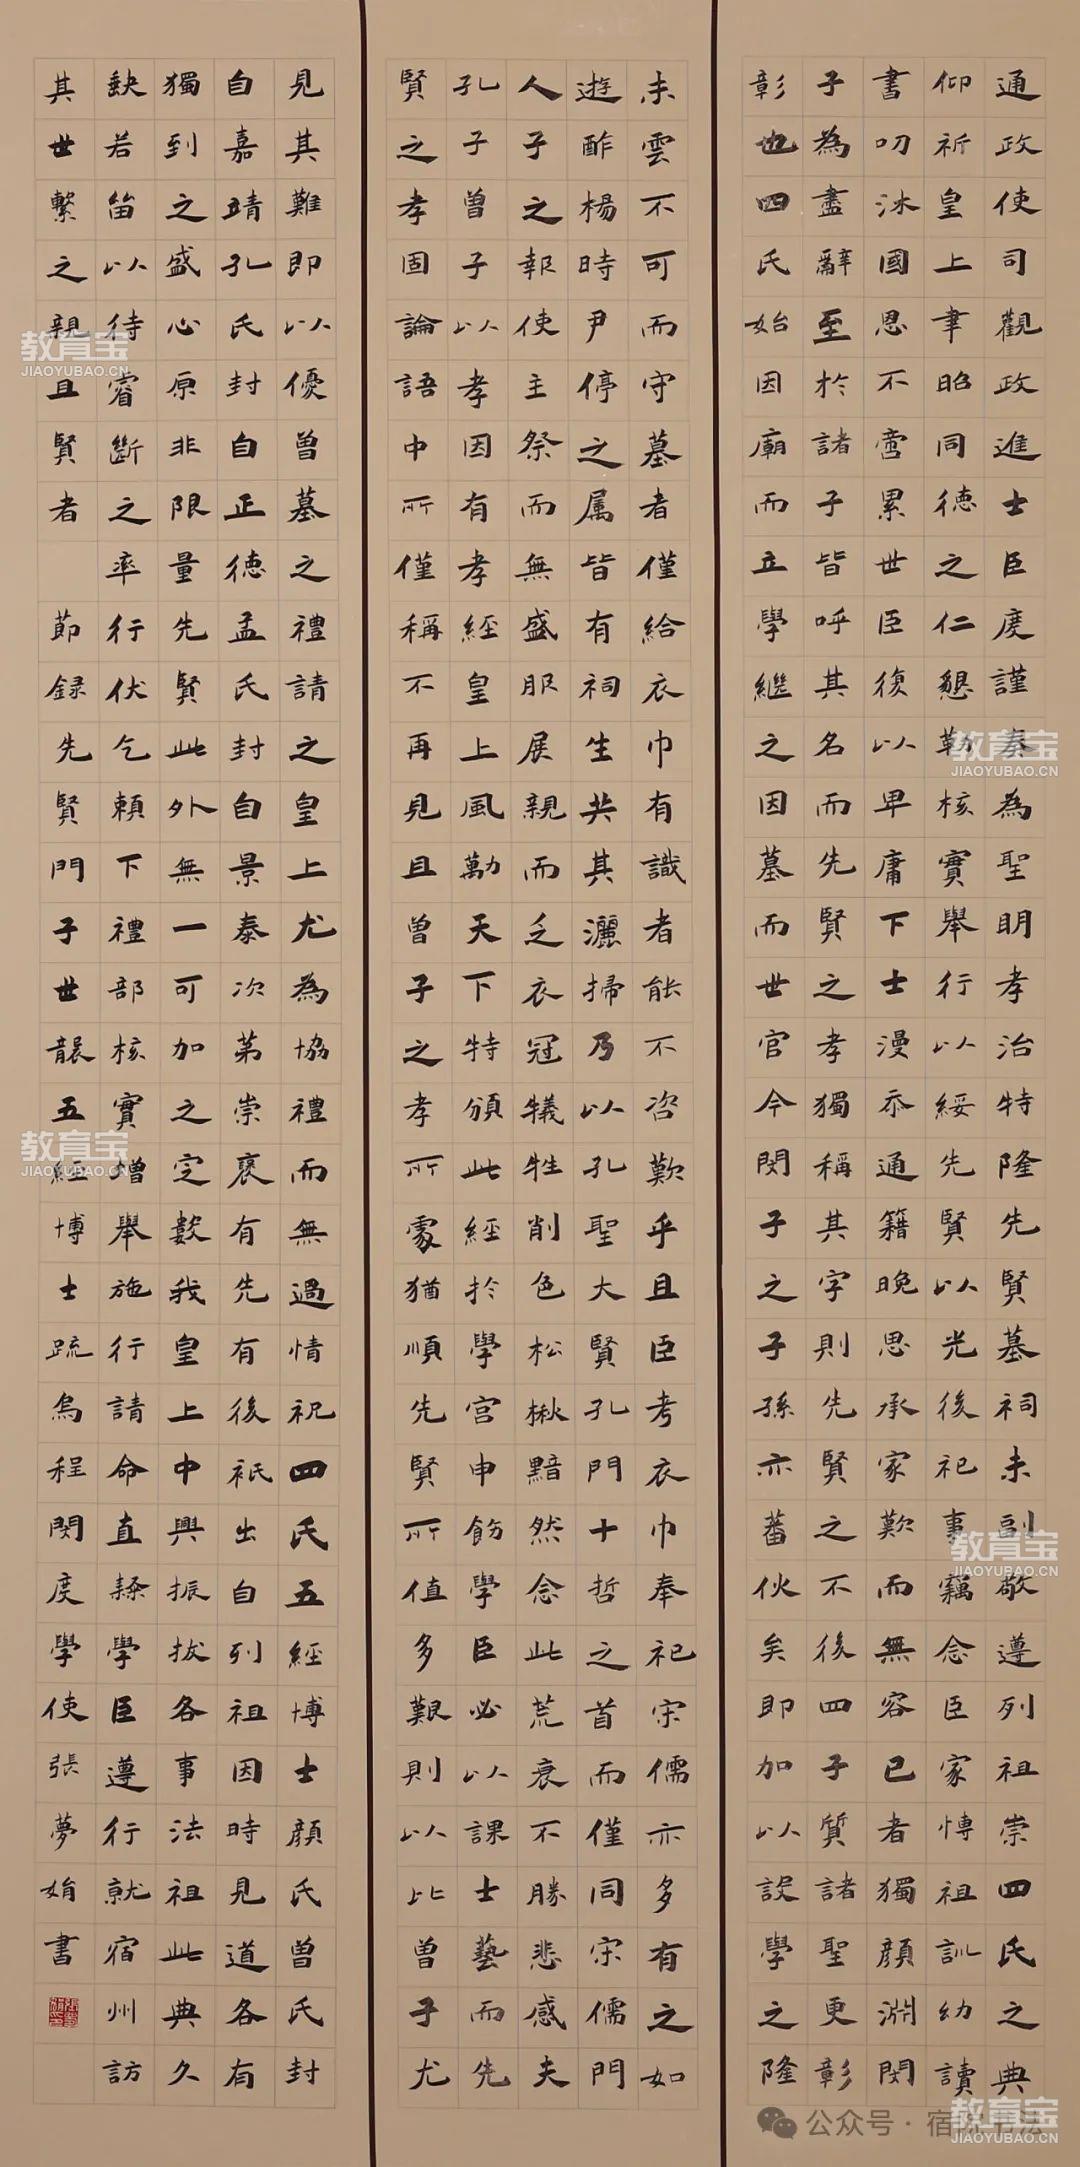 通政使司觀政進士臣度謹奏為聖明孝治特隆先賢墓祠未副敬遵列祖崇四氏之典
仰祈皇上聿昭同德之仁懇勒核實舉行以綏先賢以光後祀事竊念臣家博祖訓幼讀
書叨沐國恩不啻累世臣復以卑庸下士漫忝通籍晚思承家歎而無容已者獨顏淵閔
子為盡辭至於諸子皆呼其名而先賢之孝獨稱其字則先賢之不後四子質諸聖更彰
彰也四氏始因廟而立學繼之因墓而世官今閔子之子孫亦蕃伙矣即加以設學之隆
未雲不可而守墓者僅給衣巾有識者能不咨歎乎且臣考衣巾奉祀宋儒亦多有之如
遊酢楊時尹停之属皆有祠生共其灑掃乃以孔聖大賢孔門十哲之首而僅同宋儒門
人子之報使主祭而無盛服展親而乏衣冠犧牲削色松楸黯然念此荒衰不勝悲感夫
孔子曾子以孝因有孝經皇上風勵天下特頒此經於學宮申飭學臣必以課士藝而先
賢之孝固論語中所僅稱不再見且曾子之孝所處猶順先賢所值多艱則以比曾子尤
見其難即以優曾墓之禮請之皇上尤為協禮而無過情祀四氏五經博士顏氏曾氏封
自嘉靖孔氏封自正德孟氏封自景泰次第崇褒有先有後祇出自列祖因時見道各有
獨到之盛心原非限量先賢此外無一可加之定數我皇上中興振拔各事法祖此典久
缺若笛以待睿斷之率行伏乞賴下禮部核實增舉施行請命直隸學臣遵行就宿州訪
其世繫之親且賢者
節録先賢門子世襲五經博士疏烏程閔度學使張夢娟書
教育宝
JIAOYUBAO.CN
教育宝
JIAOYUBAO.CN
教育宝
JIAOYUBAO.CN
教育宝
JIAOYUBAO.CN
公众号·宿
教育宝
JIAOYUBAO.CN